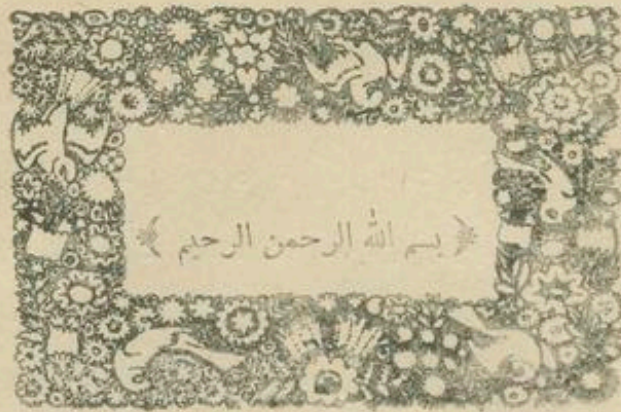 ﴿ بسم الله الرحمن الرحيم ﴾